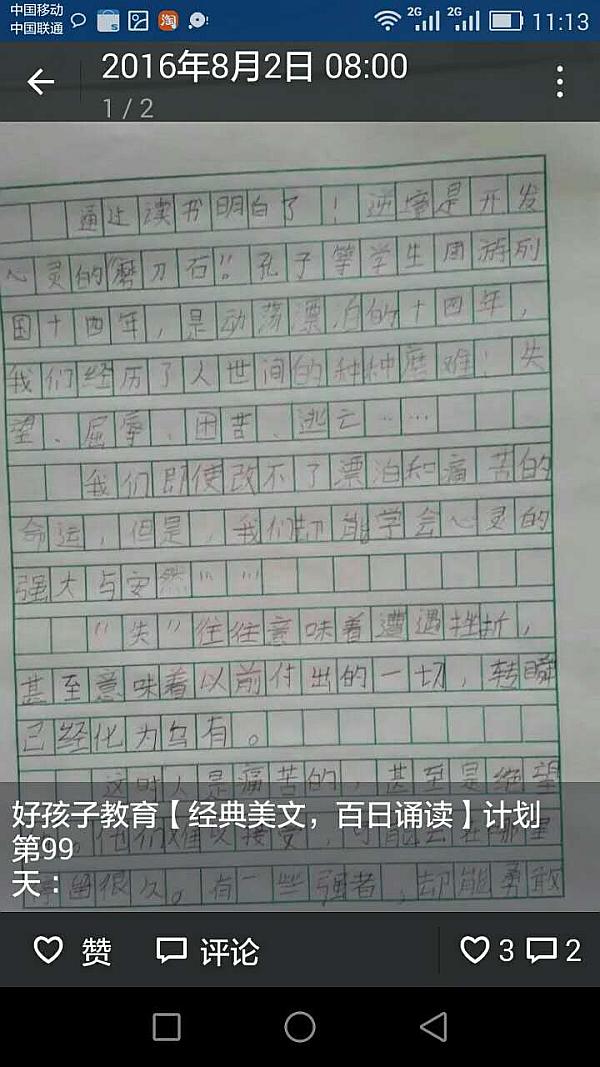 中国移动
中国联通
2G
2G
11:13
淘
2016年8月2日 08:00
1 / 2
通过读书明白了！逆境是开发
心灵的“磨刀石”。孔子等学生周游列
国十四年，是动荡漂泊的十四年，
我们经历了人世间的种种磨难！失
望、屈辱、困苦、逃亡……
我们即使改不了漂泊和痛苦的
命运，但是，我们却能学会心灵的
强大与安然……
“失”往往意味着遭遇挫折，
甚至意味着以前付出的一切，转瞬
已经化为乌有。
这时人是痛苦的，甚至是绝望
。他们难以接受，可能会在那里
停留很久。有一些强者，却能勇敢
好孩子教育【经典美文，百日诵读】计划
第99
天：
赞
评论
3
2